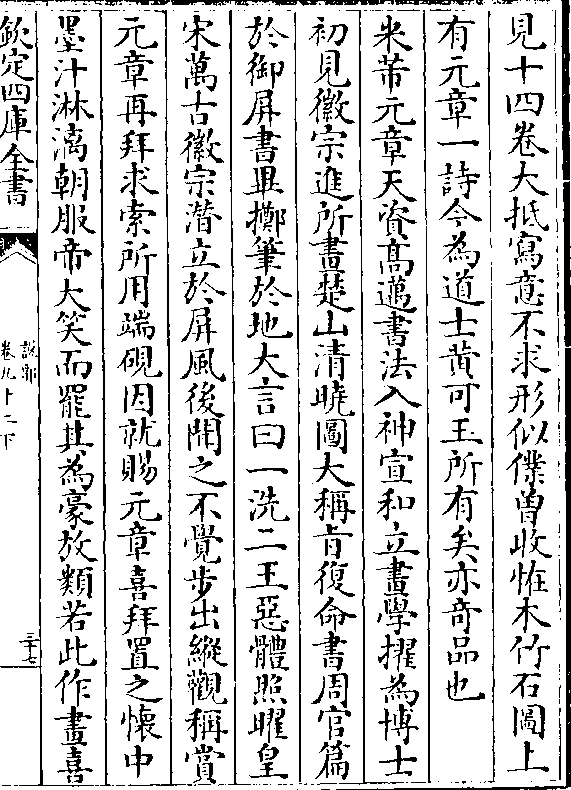 見十四卷大抵寫意不求形似僕曽收恠木竹石圖上
有元章一詩今為道士黄可玉所有矣亦竒品也
米芾元章天資髙邁書法入神宣和立畫學擢為博士
初見徽宗進所畫楚山清曉圖大稱㫖復命書周官篇
於御屏書畢擲筆於地大言曰一洗二王惡體照曜皇
宋萬古徽宗潛立於屏風後聞之不覺步出縱觀稱賞
元章再拜求索所用端硯因就賜元章喜拜置之懐中
墨汁淋漓朝服帝大笑而罷其為豪放類若此作畫喜
欽定四庫全書
説郛
卷九十二下
三十七